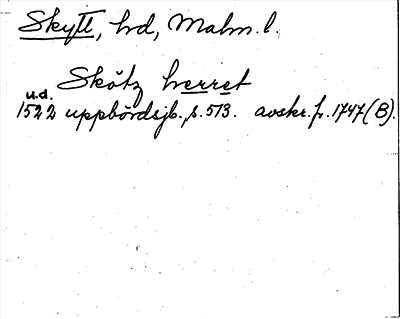 Skytt, hd, Malm. l.
Skötz herret
u.d.
1522 uppbördsjb., s. 513. avskr. fr. 1747 (B).